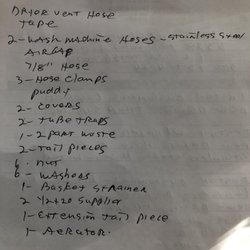 Dryor vent Hose
tape
2- wash machine Hoses - stainless steel
AirGap
7/8" Hose
3- Hose clamps
puddy
2- covers
2- tube traps
1- 2 part waste
2- tail pieces
6. nut
6- washers
1- Basket strainer
2 1/2x20 supplier
1- Extension tail piece
1- Aerator.